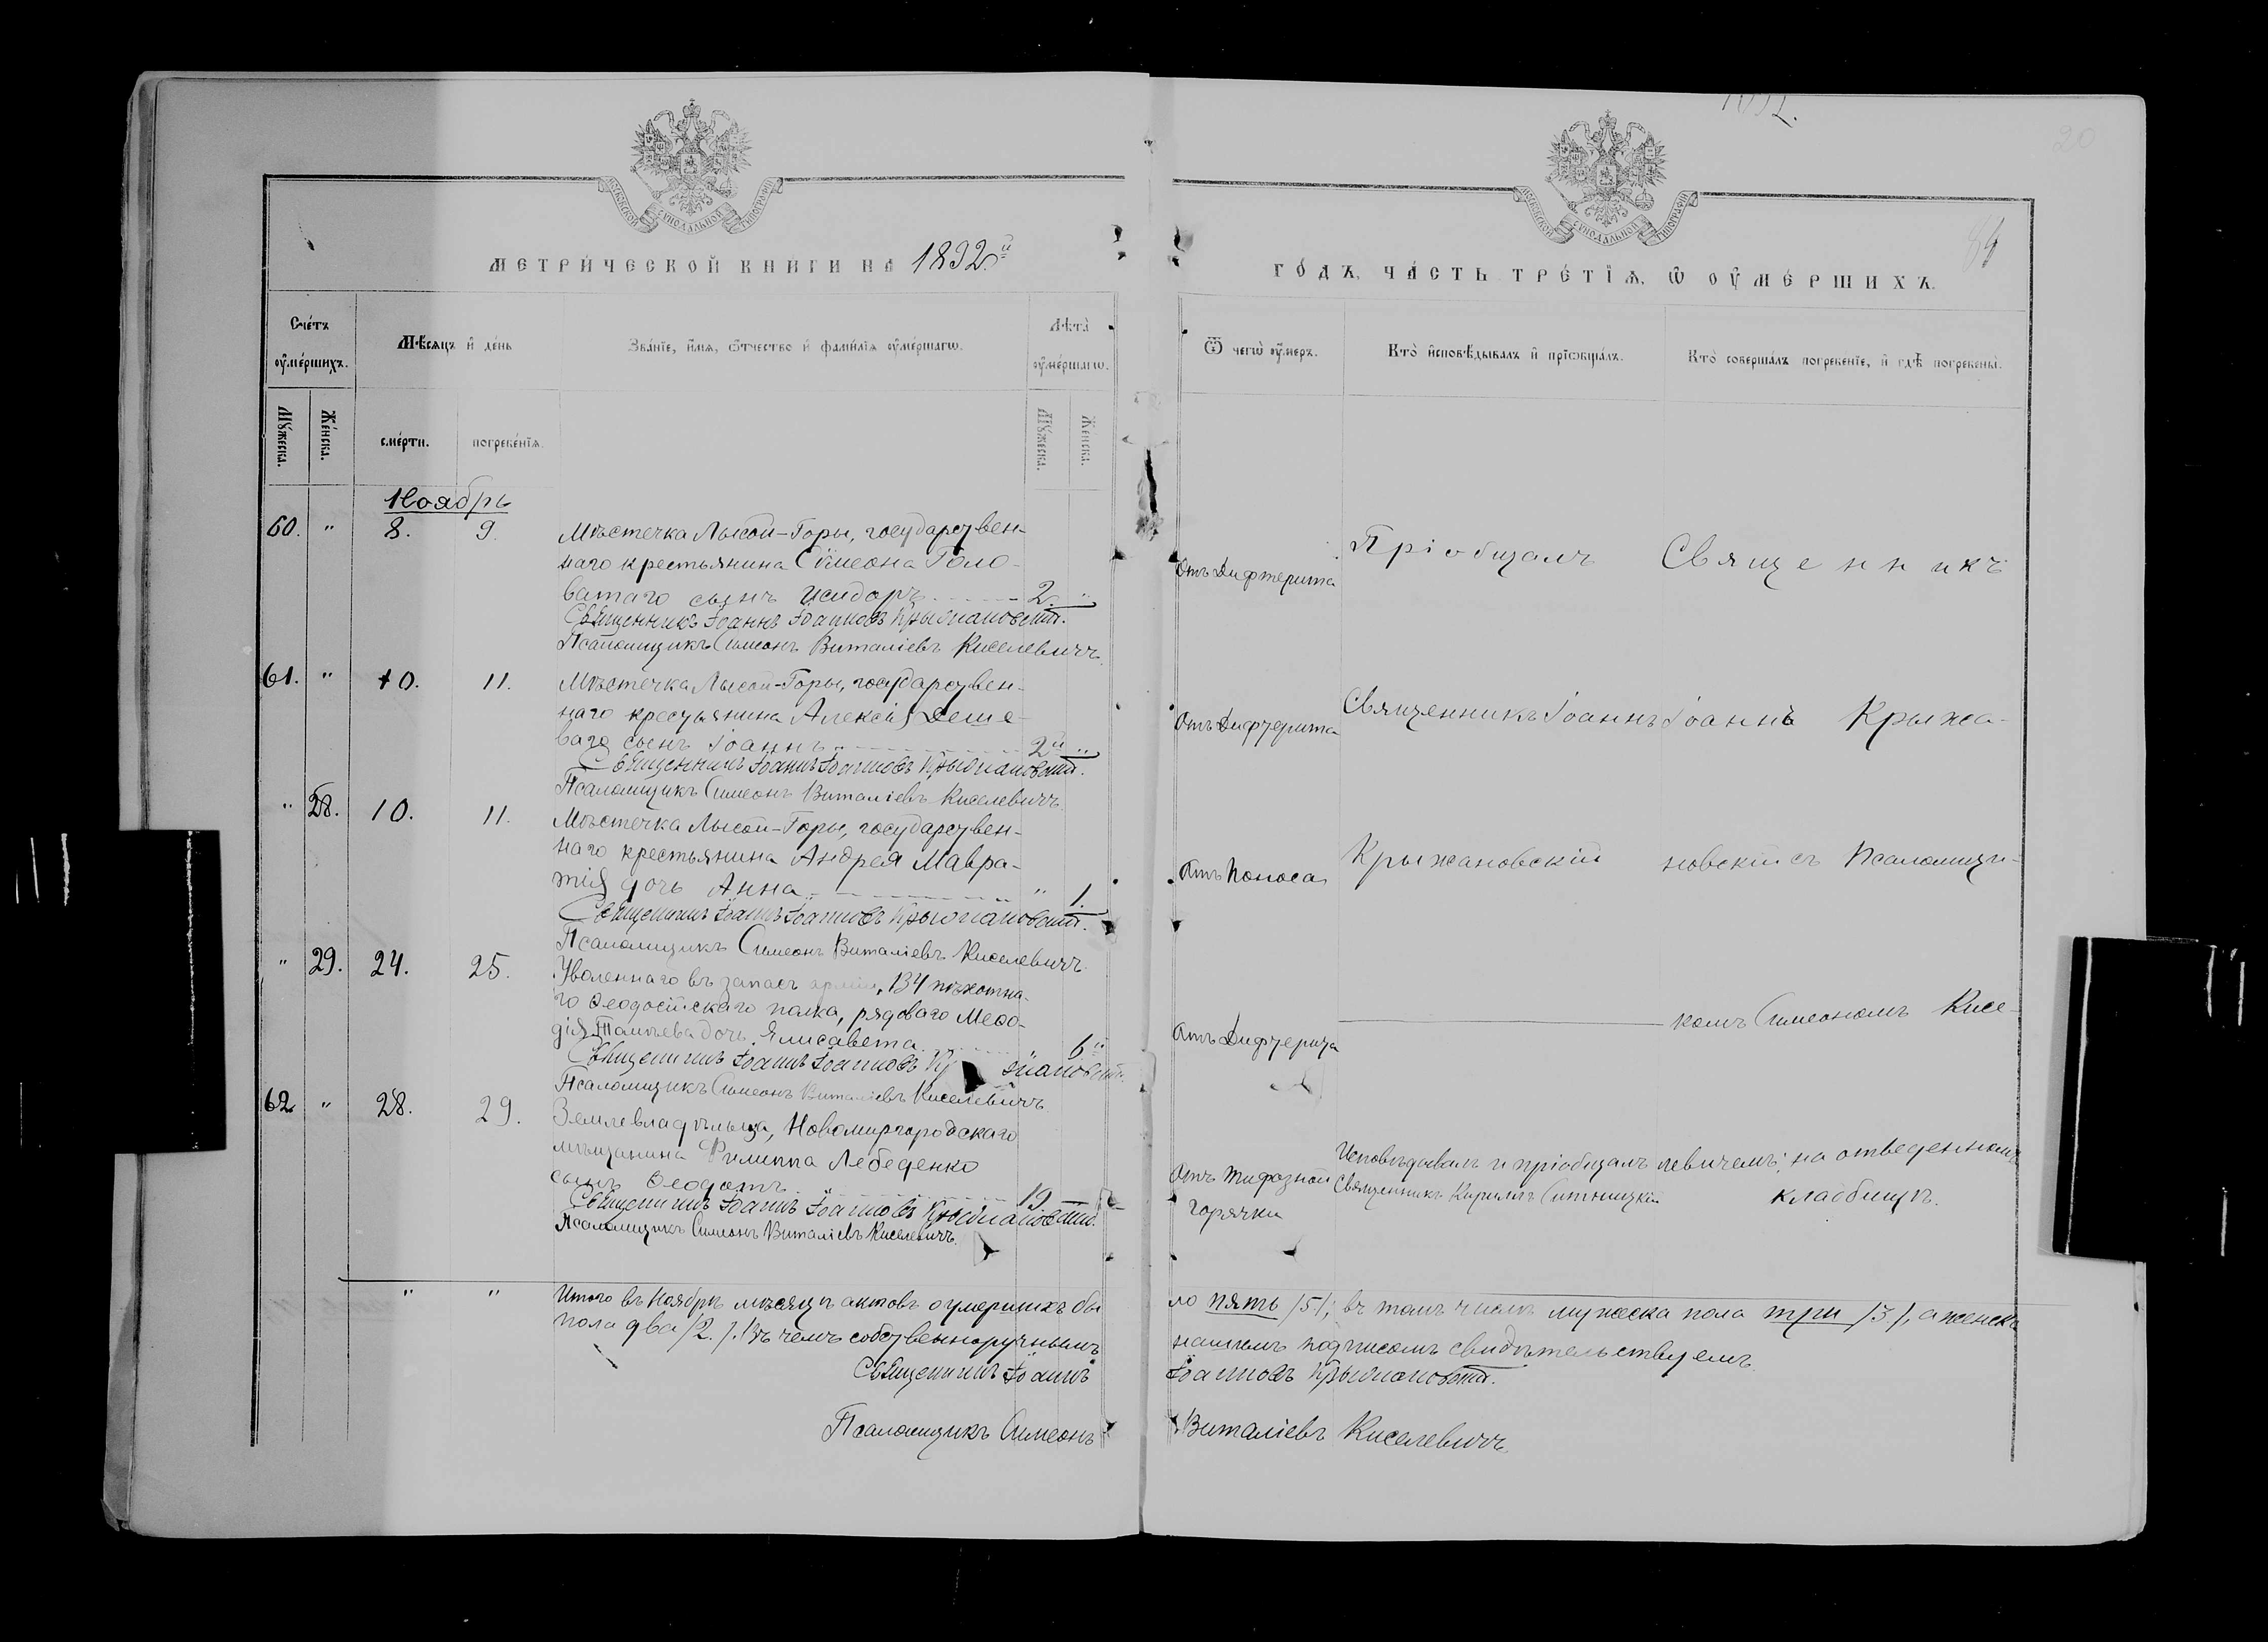 1892.
20
МОСКОВСКОЙ СѴНОДАЛЬНОЙ ТИПОГРАФІИ
МЕТРИЧЕСКОЙ КНИГИ НА 1892й
Счетъ оумершихъ.
Мѣсяцъ и день
Званіе, имя, отчество и фамилія оумершагѡ.
Лѣта оумершагѡ.
Мужеска.
Женска.
смерти.
погребенія.
Мужеска.
Женска.
Ноябрь
60. " 8. 9. Мѣстечка Лысой-Горы, государствен-
наго крестьянина Сѷмеона Голо-
ватаго сынъ Исидоръ 2. "
Священникъ Іоаннъ Іоанновъ Крыжановскій.
Псаломщикъ Симеонъ Виталіевъ Киселевичъ.
61. " 10. 11. Мѣстечка Лысой-Горы, государствен-
наго крестьянина Алексія Деше-
ваго сынъ Іоаннъ 2й "
Священникъ Іоаннъ Іоанновъ Крыжановскій.
Псаломщикъ Симеонъ Виталіевъ Киселевичъ.
" 28. 10. 11. Мѣстечка Лысой-Горы, государствен-
наго крестьянина Андрея Мавра-
тія дочь Анна " 1.
Священникъ Іоаннъ Іоанновъ Крыжановскій.
Псаломщикъ Симеонъ Виталіевъ Киселевичъ.
" 29. 24. 25. Уволеннаго въ запасъ арміи, 134 пѣхотна-
го Ѳеодосійскаго полка, рядоваго Меѳо-
дія дочь Елисавета " 6й
Священникъ Іоаннъ Іоанновъ Крыжановскій.
Псаломщикъ Симеонъ Виталіевъ Киселевичъ
62 " 28. 29. Землевладѣльца, Новомиргородскаго
мѣщанина Филиппа Лебеденко
сынъ Ѳеодотъ 19
Священникъ Іоаннъ Іоанновъ Крыжановскій.
Псаломщикъ Симеонъ Виталіевъ Киселевичъ.
" " Итого въ Ноябрѣ мѣсяцѣ актовъ о умершихъ бы
пола два /2./. Въ чемъ собственноручнымъ
Священникъ Іоаннъ
Псаломщикъ Симеонъ
МОСКОВСКОЙ СѴНОДАЛЬНОЙ ТИПОГРАФІИ
ГОДЪ, ЧАСТЬ ТРЕТІЯ, Ѡ ОУМЕРШИХЪ.
Ѿ чегѡ оумеръ.
Кто исповѣдывалъ и пріѡбщалъ.
Кто совершалъ погребеніе, и гдѣ погребены.
Отъ Дифтерита
Пріобщалъ
Священникъ
Отъ Дифтерита
Священникъ Іоаннъ
Іоаннъ Крыжа-
Отъ Поноса
Крыжановскій
новскій съ Псаломщи-
Отъ Дифтерита
комъ Симеономъ Кисе-
Отъ тифозной
горячки
Исповѣдывалъ и пріобщалъ
Священникъ Кириллъ Ситницкій
левичемъ; на отведенномъ
кладбищѣ.
ло пять /5/; въ томъ числѣ мужеска пола три /3/, а женска
нашимъ подписомъ свидѣтельствуемъ
Іоанновъ Крыжановскій.
Виталіевъ Киселевичъ.